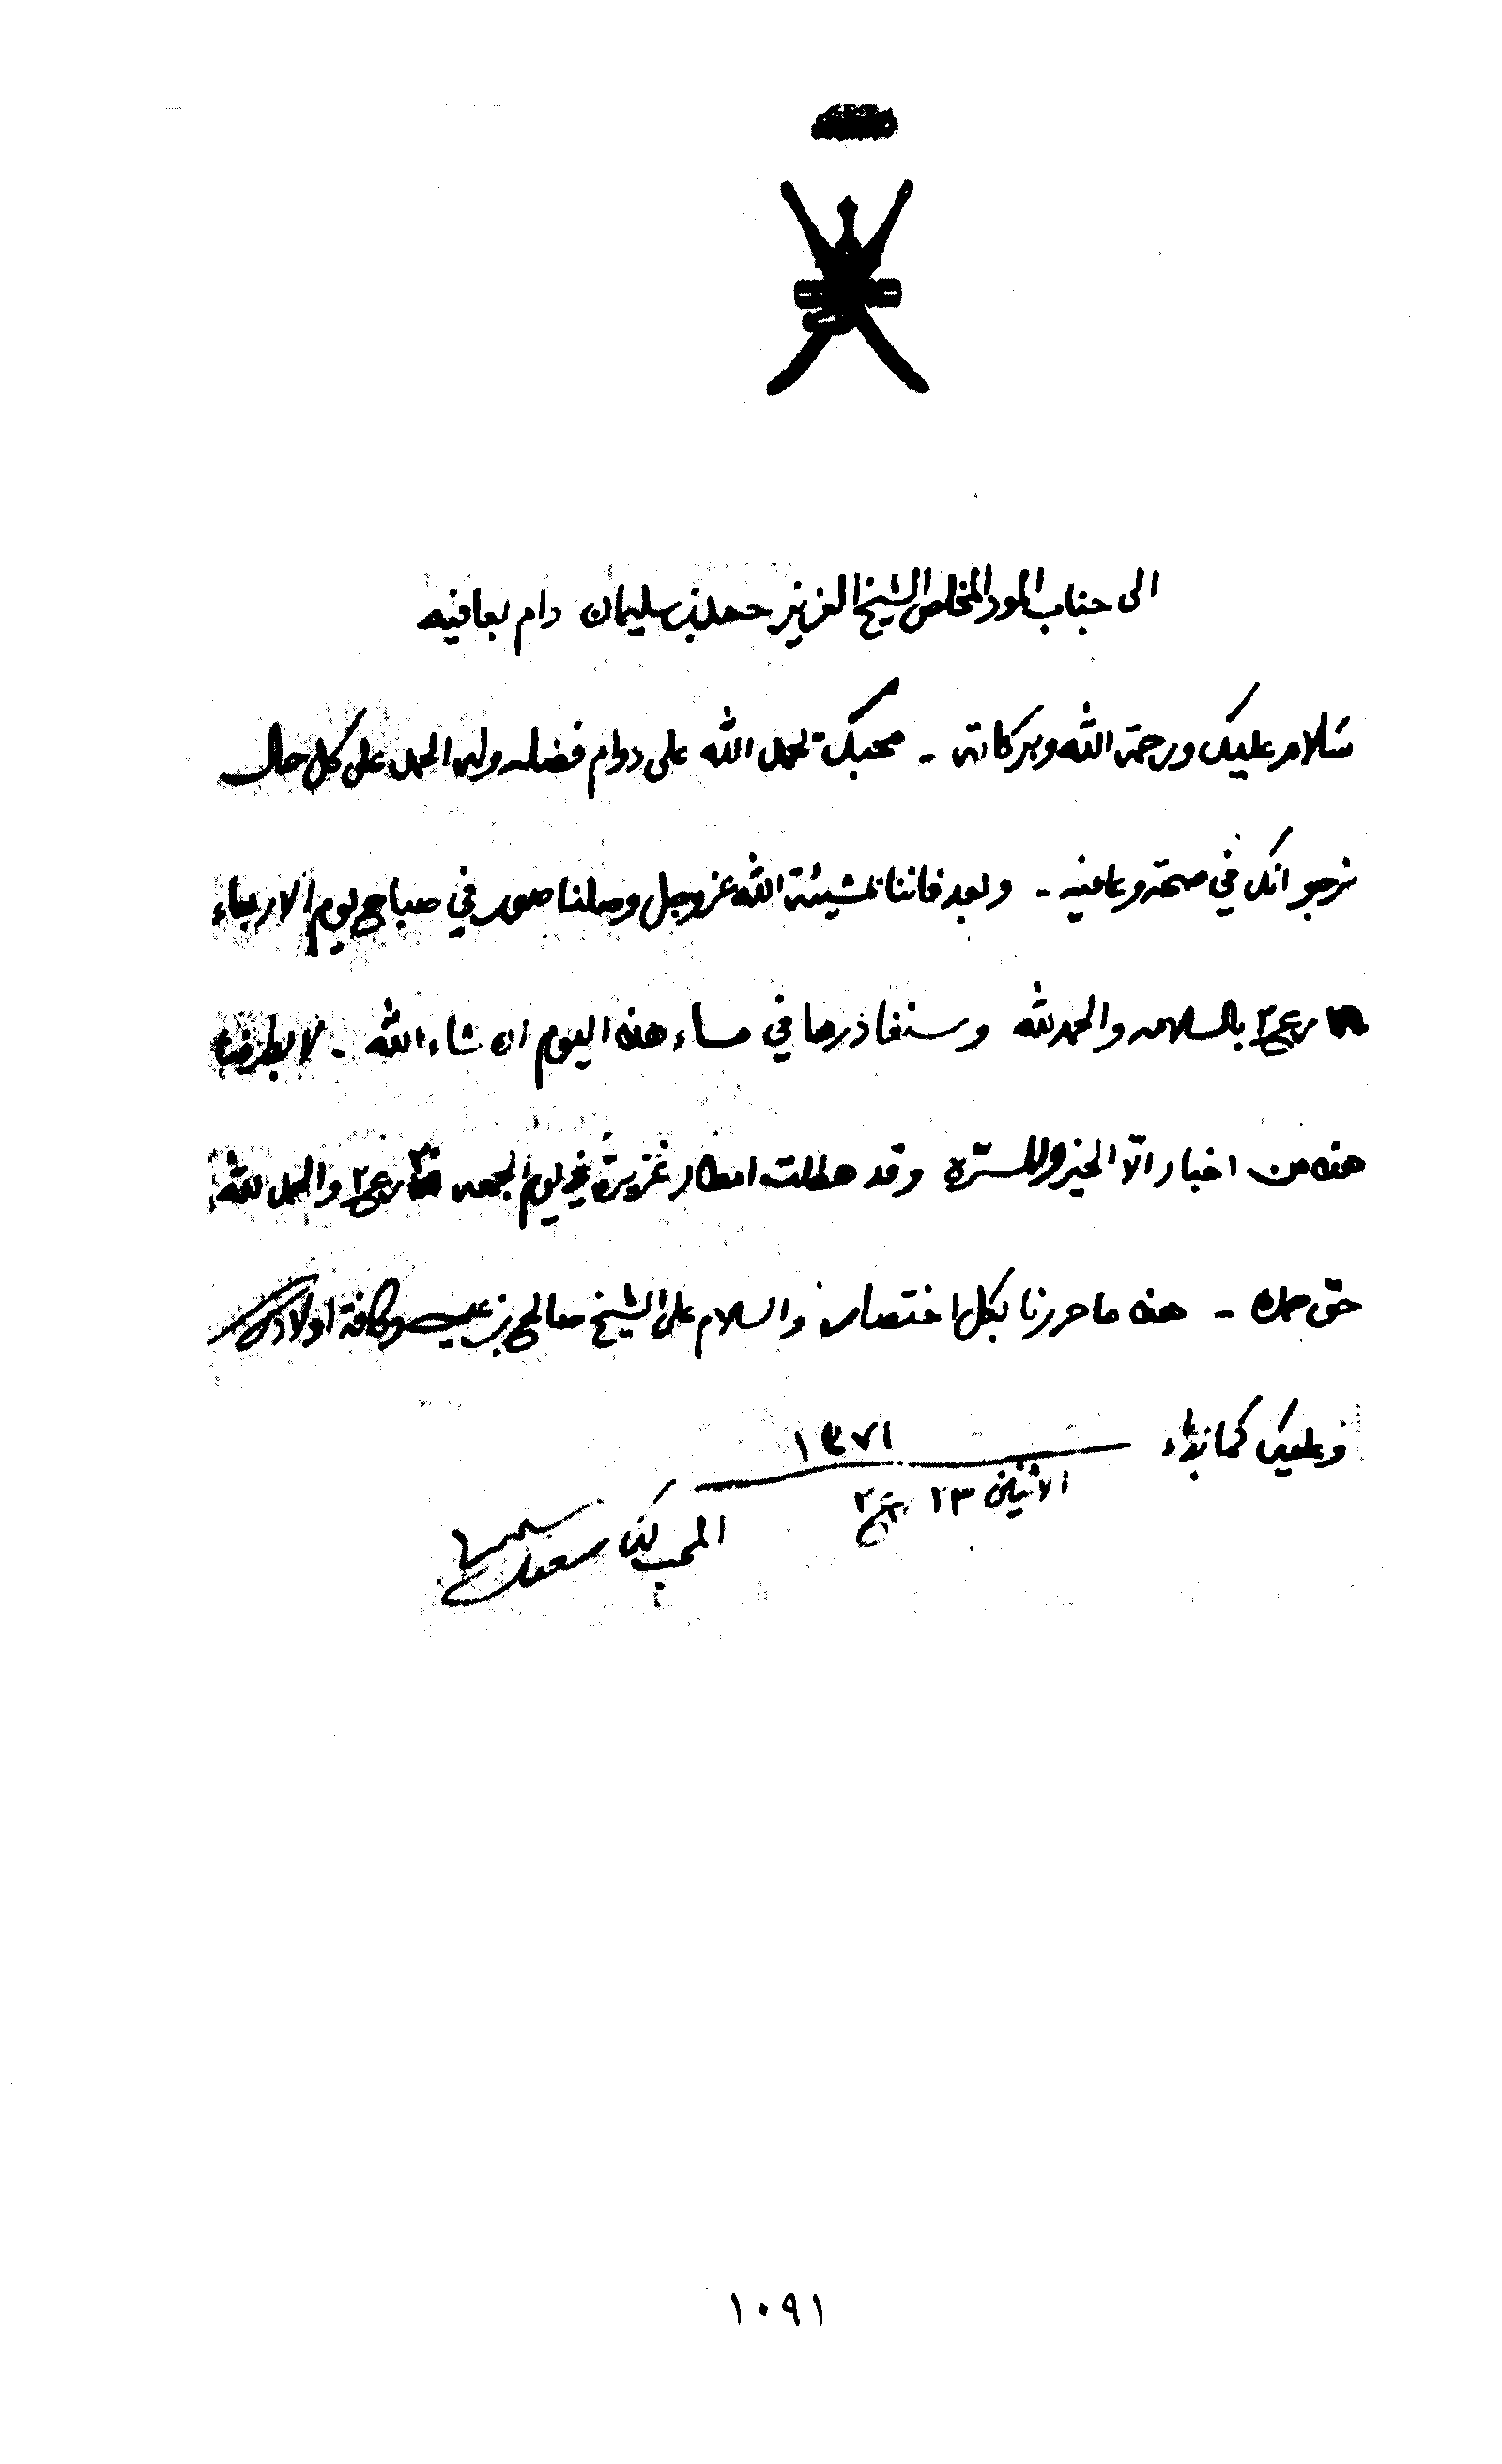 الى جناب المود المخلص الشيخ العزيز حمد بن سليمان دام بعافيه
سلام عليك ورحمة الله وبركاته - محبك يحمد الله على دوام فضله وله الحمد على كل حال
نرجو انك في صحة وعافيه - وبعد فاننا بمشيئة الله عز وجل وصلنا صور في صباح يوم الاربعاء
ربيع٢ بالسلامه والحمد لله وسنغادرها في مساء هذه اليوم ان شاء الله - لا بطرفنا
هذه من اخبار الّا الخير والمسترة وقد هطلت امطار غزيرة في يوم الجمعه ربيع٢ والحمد لله
حق حمده - هذه ما حررنا بكل اختصار والسلام على الشيخ صالح بن عيسى وكافة اولادك
وعليك كما بداء
١٣٧١
الاثنين ٢٣ ربيع٢
المحب لك سعيد
١٠٩١